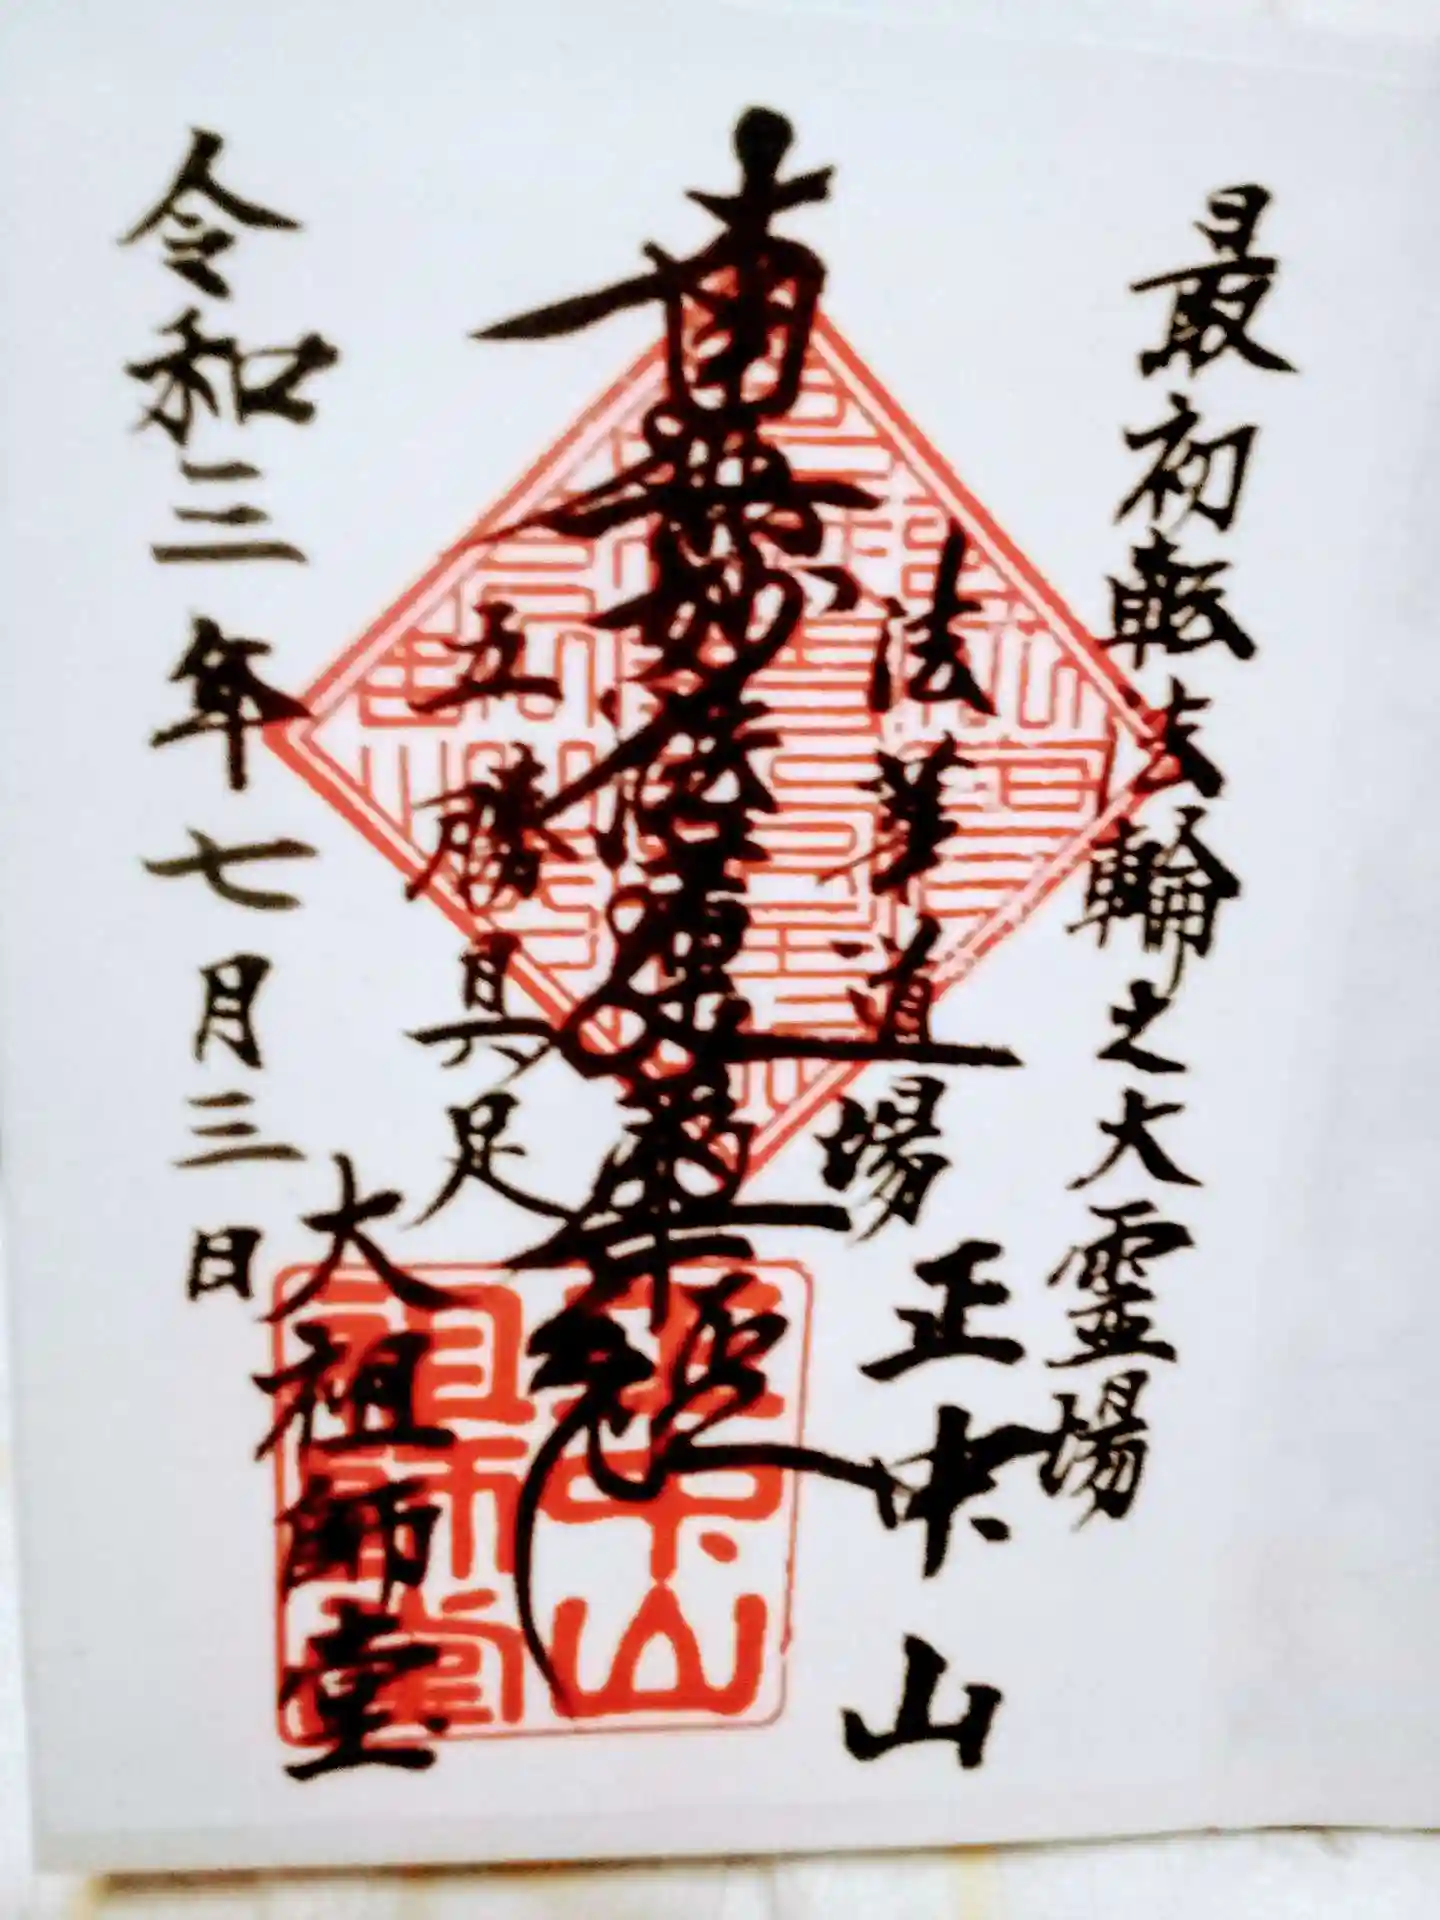 最初転法輪之大霊場
正中山
法華道場
南無妙法蓮華経
五勝具足
大祖師堂
令和三年七月三日